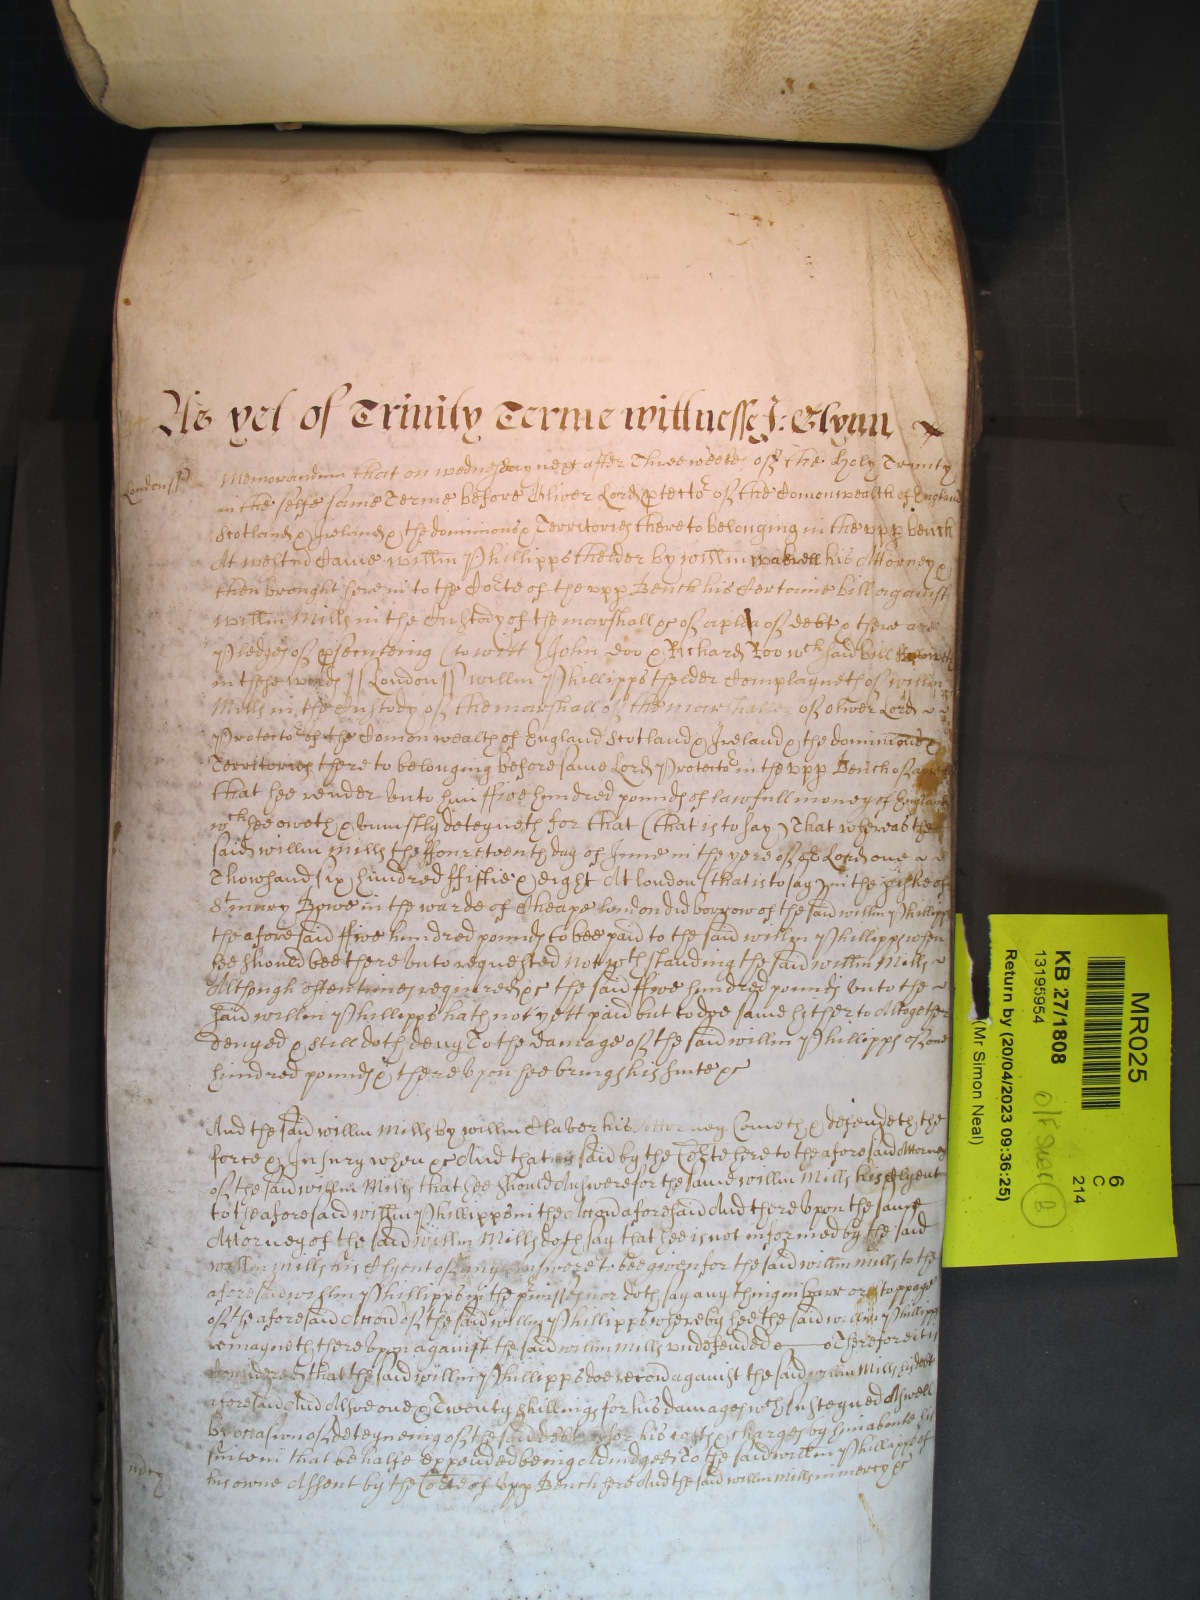 As yet of Trinity Terme wittnesse J: Glynn
London ss
Memorandum that on wednesday next after Three weekes of the Holy Trinity
in the selfe same Terme before Oliver Lord ptector of the Comonwealth of England
Scotland & Ireland & the dominions & Territories thereto belonging in the upp bench
At westm Came willm Phillipps thelder by willm his Attorney &
then brought here in to the Corte of the upp Bench his Certaine bill against
willm Mills in the Custody of the marshall &c of a plea of debt & there are
Pledges of psecuteing (to witt) John doo & Richard Roo wch said bill
in these words ss London ss willm Phillipps thelder Complayneth of willm
Mills in the Custody of the marshall of the marshalsey of oliver Lord
Protector of the Comonwealth of England Scotland & Ireland & the dominions &
Territories there to belonging before same Lord Protector in the upp Bench of a plea
that hee render unto him ffive hundred pounds of lawfull money of England
wch hee oweth & uniustly deteyneth for that (that is to say) That whereas the
said willm mills the ffourteenth day of June in the yere of or Lord one
Thowsand six hundred ffiftie & eight At london (that is to say) in the pishe of
St mary Bowe in the warde of Cheape london did borrow of the said willm Phillipps
the aforesaid ffive hundred pounds to bee paid to the said willm Phillipps when
hee should bee there unto requested Notwithstanding the said willm Mills
Although often times required &c the said ffive hundred pounds unto the
said willm Phillipps hath not yett paid but to doe same hitherto Altogether
denyed & still doth deny To the damage of the said willm Phillipps of one
hundred pounds & thereupon hee brings his suite &c
And the said willm Mills by willm Claver his Attorney Cometh & defendeth the
force & Iniury when &c And that is said by the Corte here to the aforesaid Attorney
of the said willm Mills that hee should Answere for the same willm Mills his Clyent
to the aforesaid willm Phillipps in the Accon aforesaid And thereupon the same
Attorney of the said willm Mills doth say that hee is not informed by the said
willm mills his Clyent of any Answere to bee given for the said willm mills to the
aforesaid willm Phillipps in the pmisses nor doth say any thing in barr or stoppage
of the aforesaid Accon of the said willm Phillipps whereby hee the said willm Phillipps
remayneth thereupon against the said willm Mills undefended Therefore it is
Considered that the said willm Phillipps doe recover against the said willm Mills his debt
aforesaid And Alsoe one & Twenty shillings for his damages wch hee susteyned Aswell
by occasion of deteyneing of the said debt as for his costs & charges by him aboute his
suite in that behalfe expended being Adiudged To the said willm Phillipps of
mercy
his owne Assent by the Corte of Upp Bench here And the said willm Mills in mercy &c
MR025
KB 27/1808
13195954
Return by (20/04/2023 09:36:25)
(Mr Simon Neal)
6
C
214
B